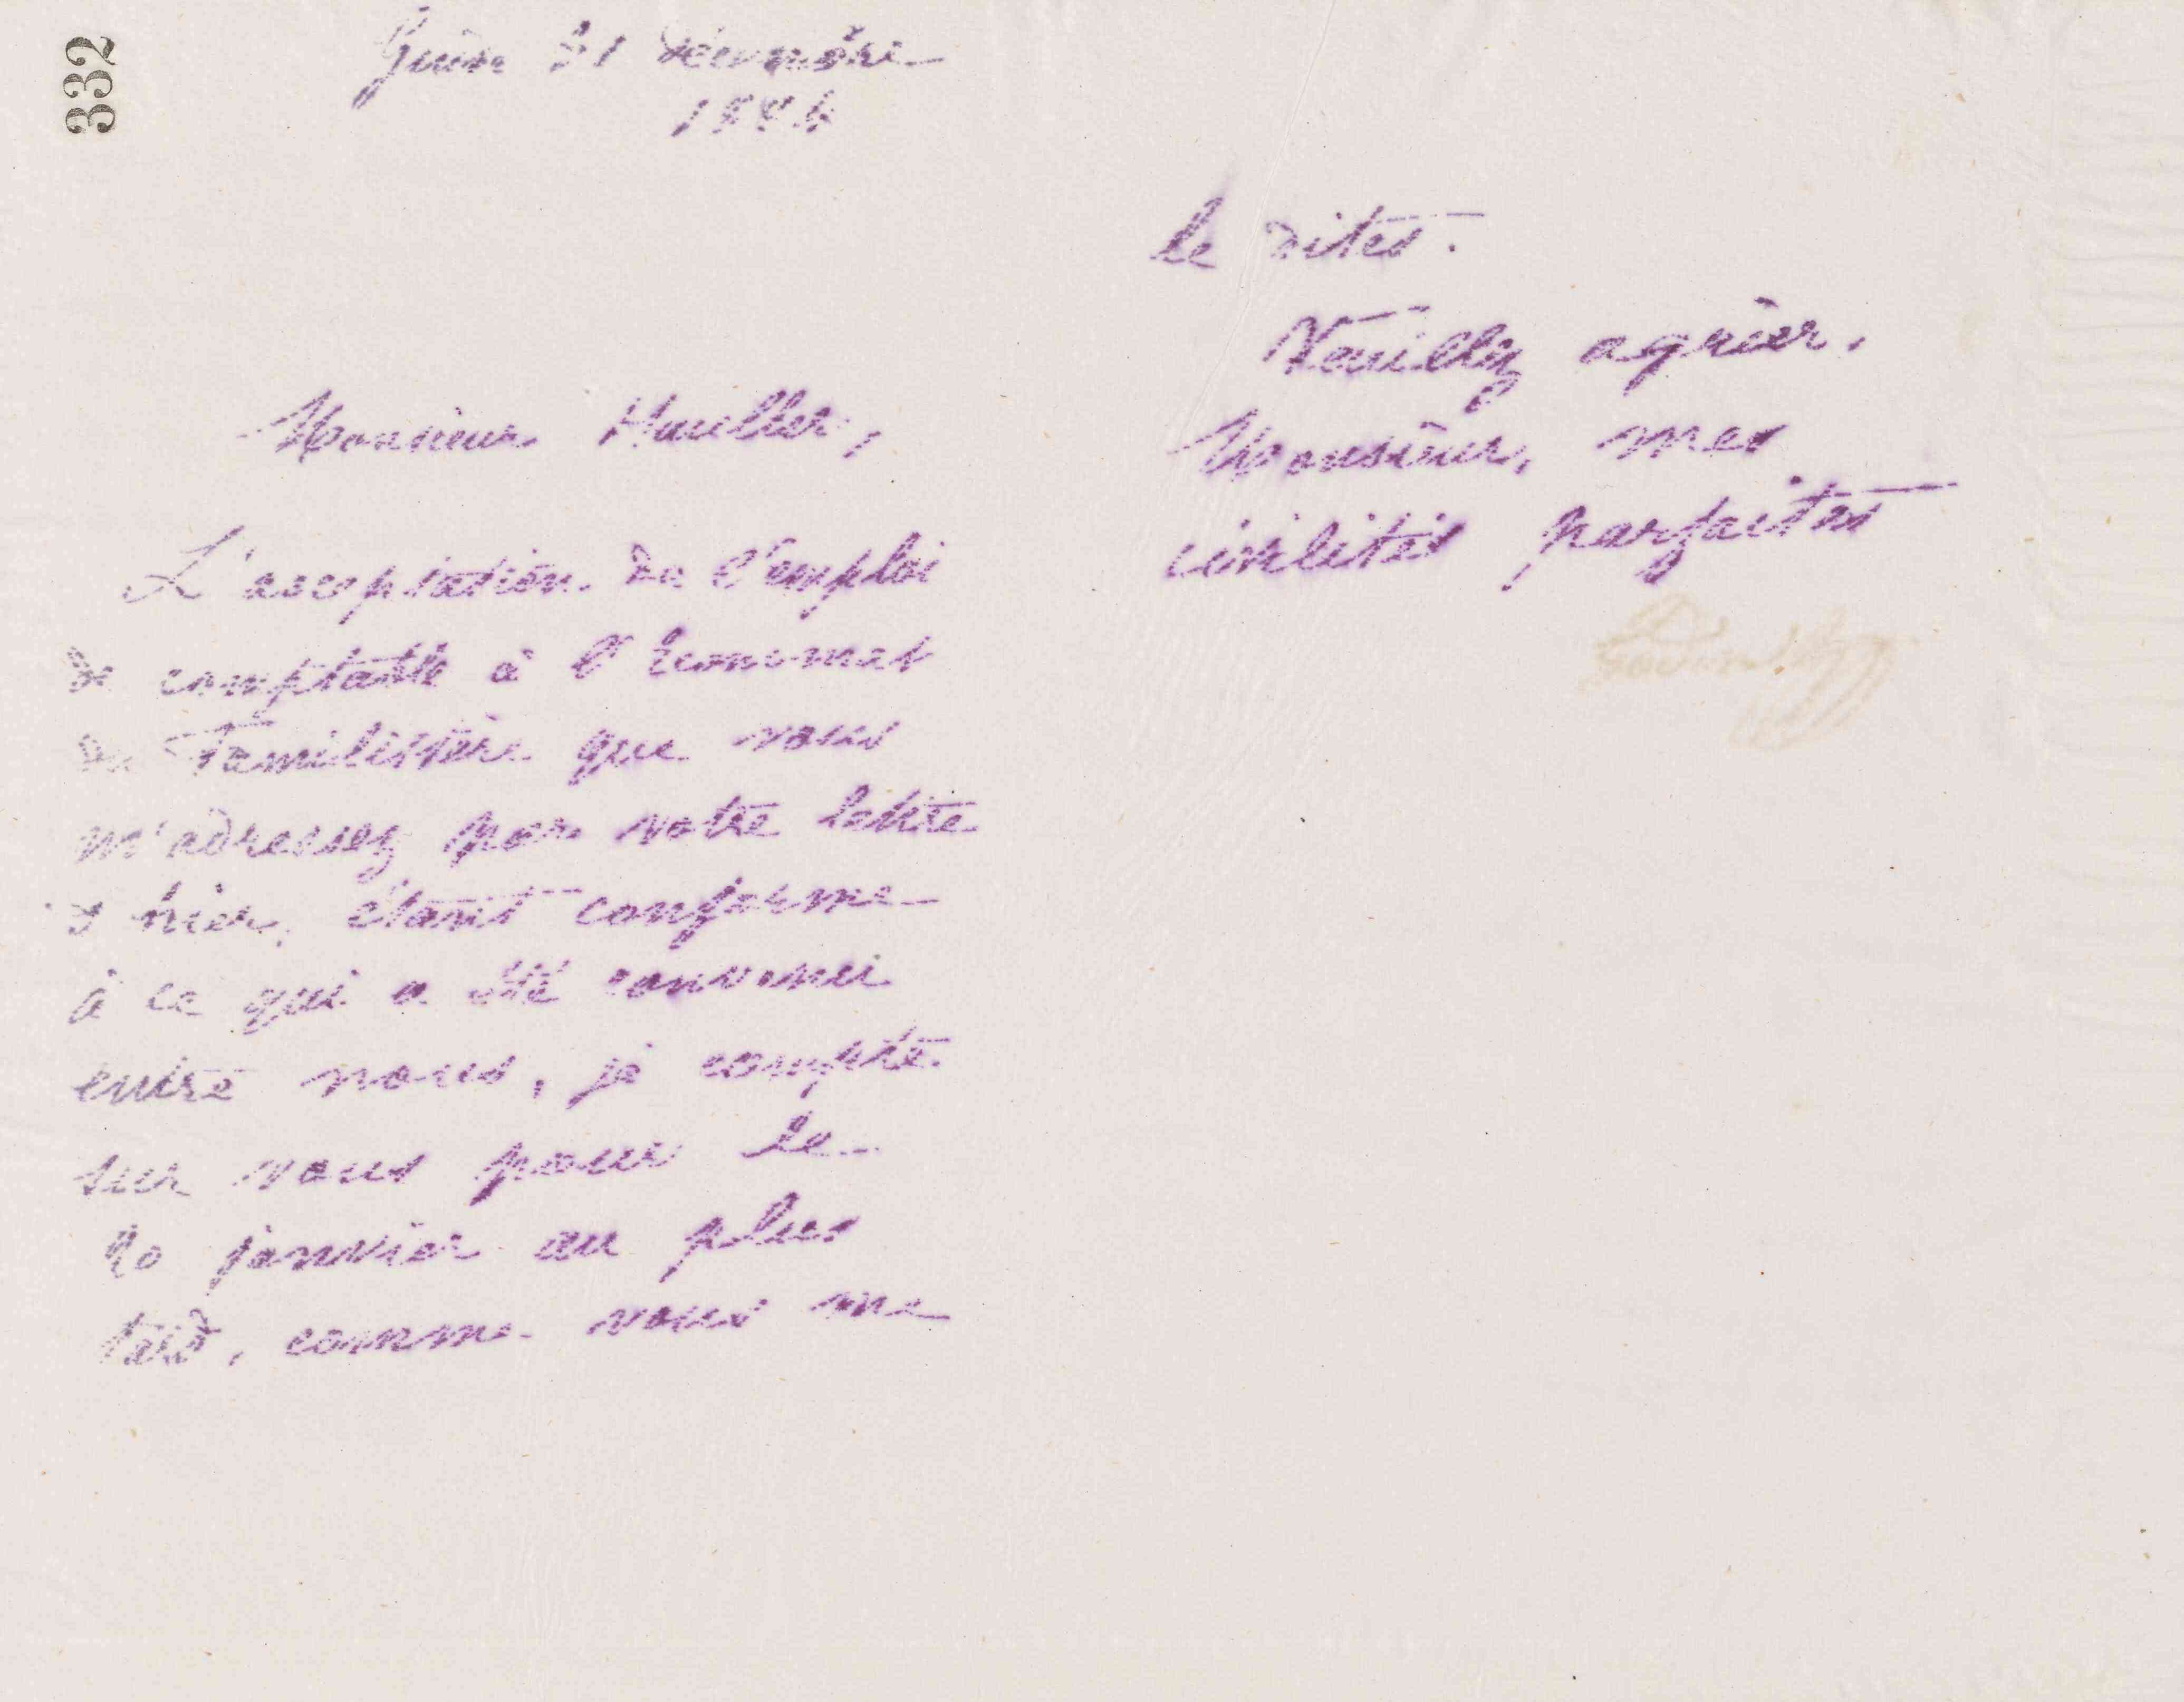 332
Guise 31 décembre
1884
Monsieur
L'acceptation de l'emploi
de comptable à l'économat
du Familistère que vous
m'adressez par votre lettre
d'hier, étant conforme
à ce qui a été convenu
entre nous, je compte
sur vous pour le
20 janvier au plus
tard, comme vous me
le dites.
Veuillez agréer,
Monsieur, mes
civilités parfaites
Godin